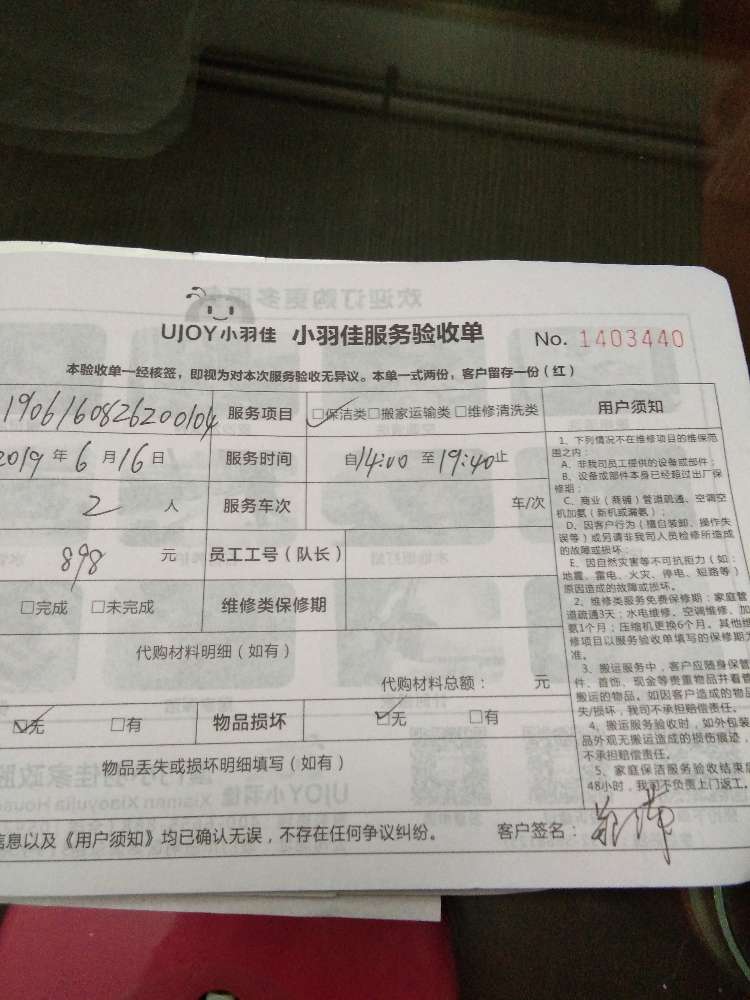 UJOY小羽佳 小羽佳服务验收单 No. 1403440
本验收单一经核签，即视为对本次服务验收无异议。本单一式两份，客户留存一份（红）
1906160826200104 服务项目 ☑保洁类□搬家运输类 □维修清洗类 用户须知
2019 年 6 月 16 日 服务时间 自14:00 至 19:40止
2 人 服务车次 车/次
898 元 员工工号（队长）
□完成 □未完成 维修类保修期
代购材料明细（如有）
代购材料总额： 元
☑无 □有 物品损坏 ☑无 □有
物品丢失或损坏明细填写（如有）
信息以及《用户须知》均已确认无误，不存在任何争议纠纷。 客户签名：
1、下列情况不在维修项目的维保范
围之内：
A、非我司员工提供的设备或部件；
B、设备或部件本身已经超过出厂保
修期；
C、商业（商铺）管道疏通、空调空
机加氨（新机或漏氨）；
D、因客户行为（擅自装卸、操作失
误等）或另请非我司人员检修所造成
的故障或损坏；
E、因自然灾害等不可抗拒力（如：
地震、雷电、火灾、停电、短路等）
原因造成的故障或损坏。
2、维修类服务免费保修期：家庭管
道疏通3天；水电维修、空调维修、加
氨1个月；压缩机更换6个月。其他维
修项目以服务验收单填写的保修期为
准。
3、搬运服务中，客户应随身保管
件、首饰、现金等贵重物品并看管
搬运的物品。如因客户造成的物品
失/损坏，我司不承担赔偿责任。
4、搬运服务验收时，如外包装
品外观无搬运造成的损伤痕迹，
不承担赔偿责任。
5、家庭保洁服务验收结束后
48小时，我司不负责上门返工。
欢迎订购更多服务